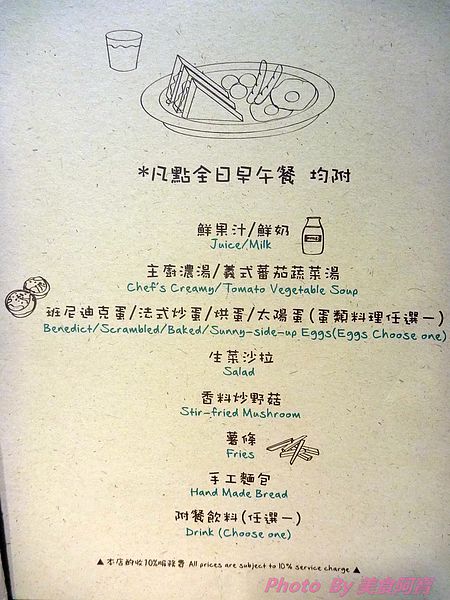 *凡點全日早午餐 均附
鮮果汁/鮮奶
Juice/Milk
主廚濃湯/義式蕃茄蔬菜湯
Chef's Creamy/Tomato Vegetable Soup
班尼迪克蛋/法式炒蛋/烘蛋/太陽蛋(蛋類料理任選一)
Benedict/Scrambled/Baked/Sunny-side-up Eggs(Eggs Choose one)
生菜沙拉
Salad
香料炒野菇
Stir-fried Mushroom
薯條
Fries
手工麵包
Hand Made Bread
附餐飲料(任選一)
Drink (Choose one)
▲本店酌收10%服務費 All prices are subject to 10% service charge▲
Photo By 美食阿宵